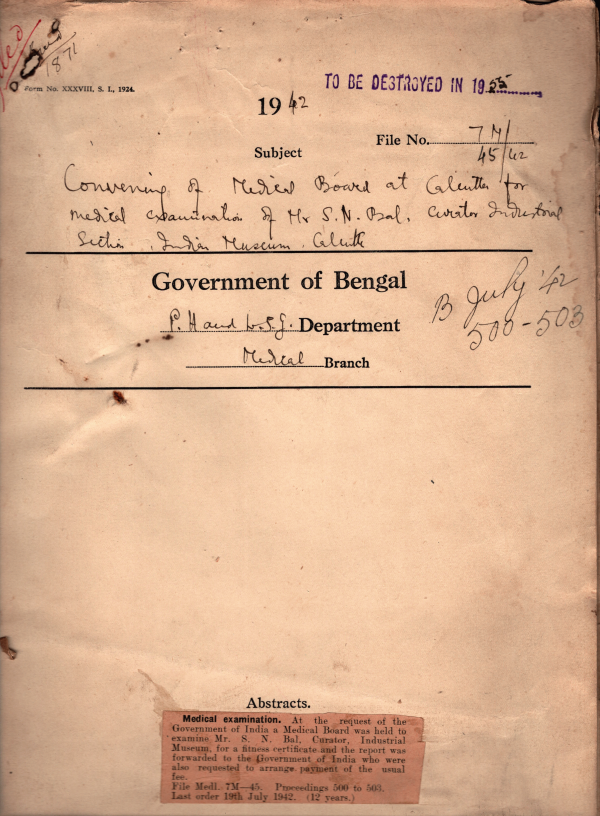 1871
Form No. XXXVIII, S. I., 1924.
TO BE DESTROYED IN 1955
1942
File No. 7M/45/42
Subject
Convening of Medical Board at Calcutta for
medical examination of Mr S. N. Bal, Curator Industrial
Section, Indian Museum, Calcutta
Government of Bengal
P. H and L.S.G. Department
Medical Branch
B July '42
500-503
Abstracts.
Medical examination. At the request of the
Government of India a Medical Board was held to
examine Mr. S. N. Bal, Curator, Industrial
Museum, for a fitness certificate and the report was
forwarded to the Government of India who were
also requested to arrange payment of the usual
fee.
File Medl. 7M—45. Proceedings 500 to 503.
Last order 19th July 1942. (12 years.)